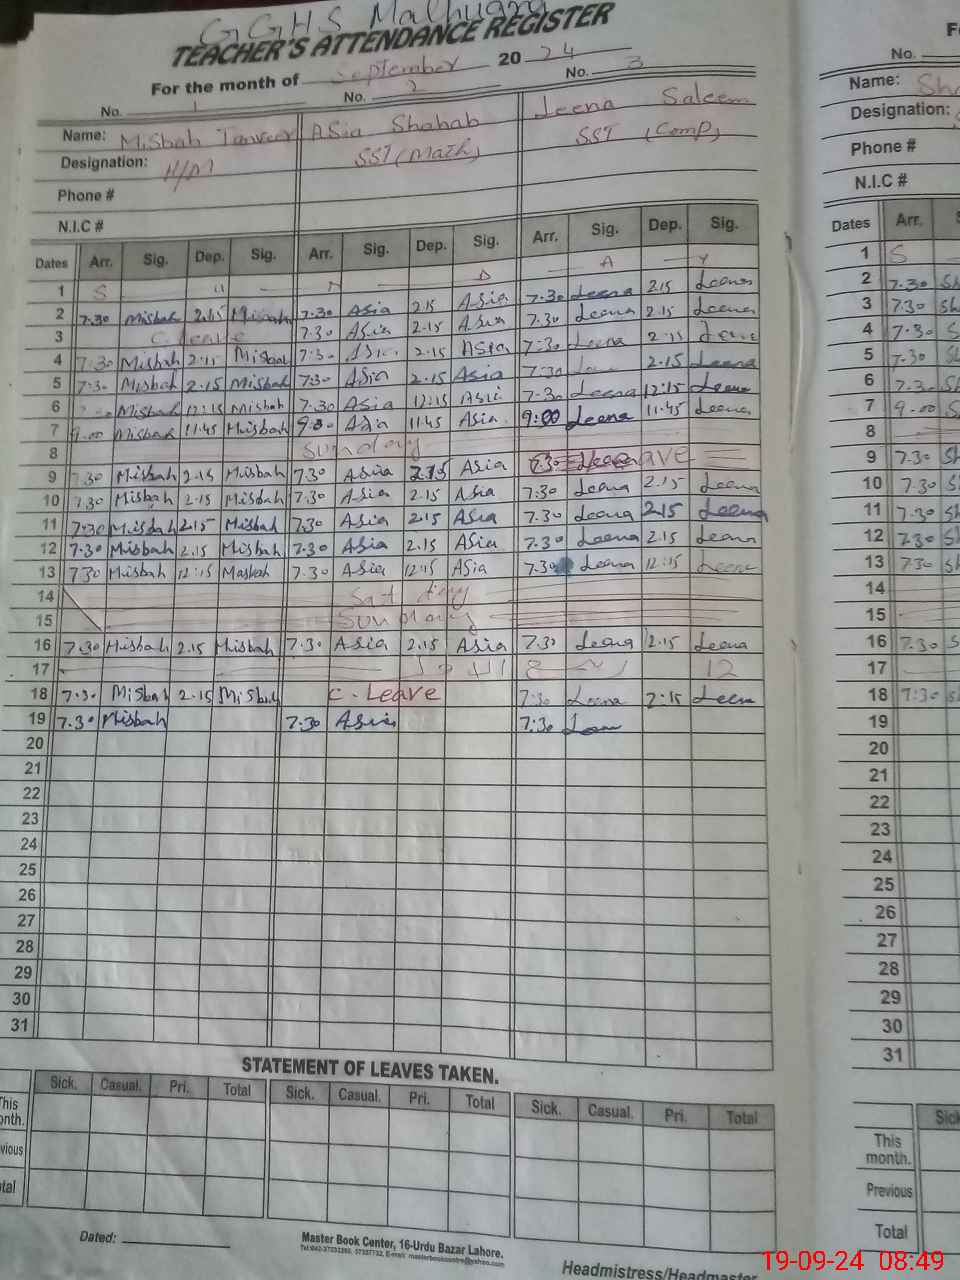 GGHS Malhuany
TEACHER'S ATTENDANCE REGISTER
For the month of September 2024
No. 1 No. 2 No. 3
Name: Misbah Tanveer Asia Shahab Leena Saleem
Designation: H/M SST (Math) SST (Comp)
Phone #
N.I.C #
Dates Arr. Sig. Dep. Sig. Arr. Sig. Dep. Sig. Arr. Sig. Dep. Sig.
1 S U N D A Y
2 7.30 Misbah 2.15 Misbah 7.30 Asia 2.15 Asia 7.30 Leena 2.15 Leena
3 C. leave 7.30 Asia 2.15 Asia 7.30 Leena 2.15 Leena
4 7.30 Misbah 2.15 Misbah 7.30 Asia 2.15 Asia 7:30 Leena 2:15 Leena
5 7.30 Misbah 2.15 Misbah 7.30 Asia 2.15 Asia 7:30 2.15 Leena
6 Misbah 12:15 Misbah 7.30 Asia 12:15 Asia 7.30 Leena 12:15 Leena
7 9.00 Misbah 11.45 Misbah Asia 11.45 Asia 9:00 Leena 11.45 Leena
8 Sunday
9 7.30 Misbah 2.15 Misbah 7.30 Asia 2.15 Asia 7.30 Leave
10 7.30 Misbah 2.15 Misbah 7.30 Asia 2.15 Asia 7.30 Leena 2.15 Leena
11 7.30 Misbah 2.15 Misbah 7.30 Asia 2.15 Asia 7.30 Leena 2.15 Leena
12 7.30 Misbah 2.15 Misbah 7.30 Asia 2.15 Asia 7.30 Leena 2.15 Leena
13 7.30 Misbah 12:15 Masbah 7.30 Asia 12:15 Asia 7.30 Leena 12:15 Leena
14 Sat day
15 Sunday
16 7.30 Misbah 2.15 Misbah 7.30 Asia 2.15 Asia 7.30 Leena 2.15 Leena
17 12
18 7.30 Misbah 2.15 Misbah C. Leave 7:30 Leena 2:15 Leena
19 7.30 Misbah 7.30 Asia 7:30
20
21
22
23
24
25
26
27
28
29
30
31
STATEMENT OF LEAVES TAKEN.
Sick. Casual. Pri. Total Sick. Casual. Pri. Total Sick. Casual. Pri. Total
This month.
Dated:
Master Book Center, 16-Urdu Bazar Lahore.
Headmistress/Headmaster
No.
Name: Sha
Designation:
Phone #
N.I.C #
Dates Arr.
1 S
2 7.30 Sh
3 7.30 Sh
4 7.30
5 7.30
6 7.30
7 9.00
8
9 7.30
10 7.30
11 7.30
12 7.30
13 7.30
14
15
16 7.30
17
18 7:30
19
20
21
22
23
24
25
26
27
28
29
30
31
This month.
Previous
Total
19-09-24 08:49